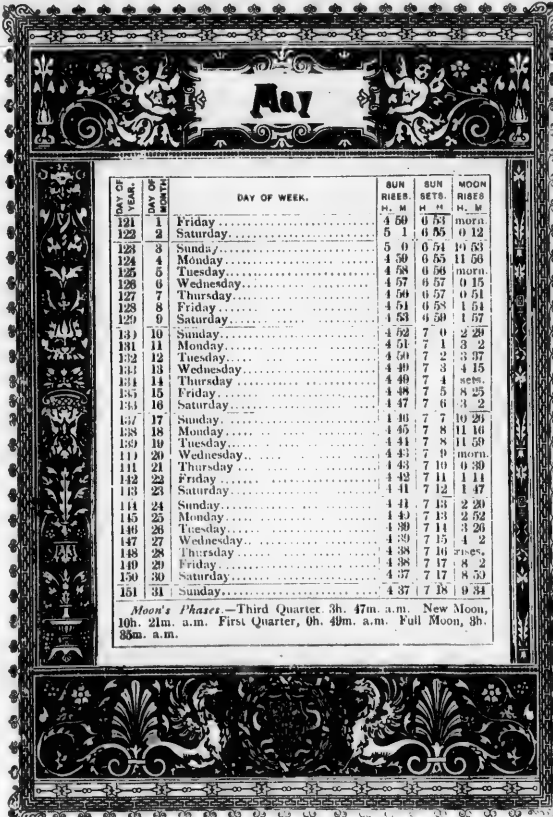 May
DAY OF YEAR. DAY OF MONTH DAY OF WEEK. SUN RISES. SUN SETS. MOON RISES
H. M H M H. M
121 1 Friday 4 59 6 53 morn.
122 2 Saturday 5 1 6 55 0 12
123 3 Sunday 5 0 6 54 10 53
124 4 Monday 4 59 6 55 11 56
125 5 Tuesday 4 58 6 56 morn.
126 6 Wednesday 4 57 6 57 0 15
127 7 Thursday 4 56 6 57 0 51
128 8 Friday 4 54 6 58 1 54
129 9 Saturday 4 53 6 59 1 57
130 10 Sunday 4 52 7 0 2 29
131 11 Monday 4 51 7 1 3 2
132 12 Tuesday 4 50 7 2 3 37
133 13 Wednesday 4 49 7 3 4 15
134 14 Thursday 4 49 7 4 sets.
135 15 Friday 4 48 7 5 8 25
16 Saturday 4 47 7 6 2
137 17 Sunday 4 46 7 7 10 26
138 18 Monday 4 45 7 8 11 16
139 19 Tuesday 4 44 7 8 11 59
20 Wednesday 4 43 7 9 morn.
141 21 Thursday 4 43 7 10 0 39
142 22 Friday 4 42 7 11 1 14
143 23 Saturday 4 41 7 12 1 47
144 24 Sunday 4 41 7 13 2 20
145 25 Monday 4 40 7 13 2 52
146 26 Tuesday 4 39 7 14 3 26
147 27 Wednesday 4 39 7 15 4 2
148 28 Thursday 4 38 7 16 rises.
149 29 Friday 4 38 7 17 8 2
150 30 Saturday 4 37 7 17 8 59
151 31 Sunday 4 37 7 18 9 34
Moon's Phases.—Third Quarter 3h. 47m. a.m. New Moon,
10h. 21m. a.m. First Quarter, 0h. 49m. a.m. Full Moon, 3h.
35m. a.m.